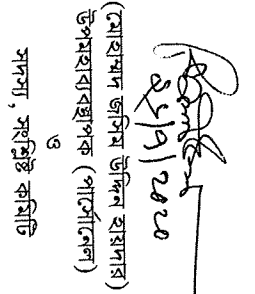 ২৮/৭/২০২০
(মোহাম্মদ জসিম উদ্দিন হায়দার)
উপমহাব্যবস্থাপক (পার্সোনেল)
ও
সদস্য, সংশ্লিষ্ট কমিটি